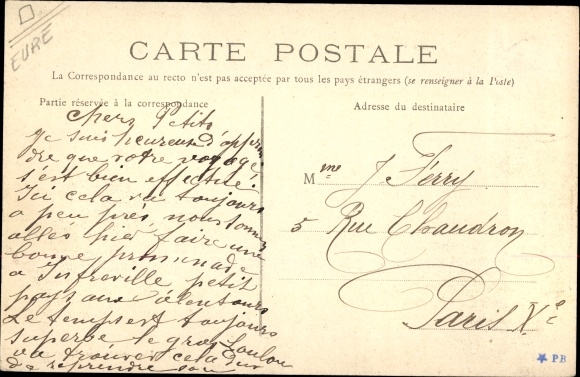 EURE
CARTE POSTALE
La Correspondance au recto n'est pas acceptée par tous les pays étrangers (se renseigner à la Poste)
Partie réservée à la correspondance
Adresse du destinataire
Chers Petits
Je suis heureux d'appren
dre que votre voyage
s'est bien effectué.
Ici cela va toujours
a peu près, nous sommes
allés hier faire une
bonne promenade
a Infreville petit
pays aux alentours
Le temps est toujours
superbe le gros Loulou
va trouver cela dur
de reprendre son
Mme J Ferry
5 Rue Chaudron
Paris Xe
PB